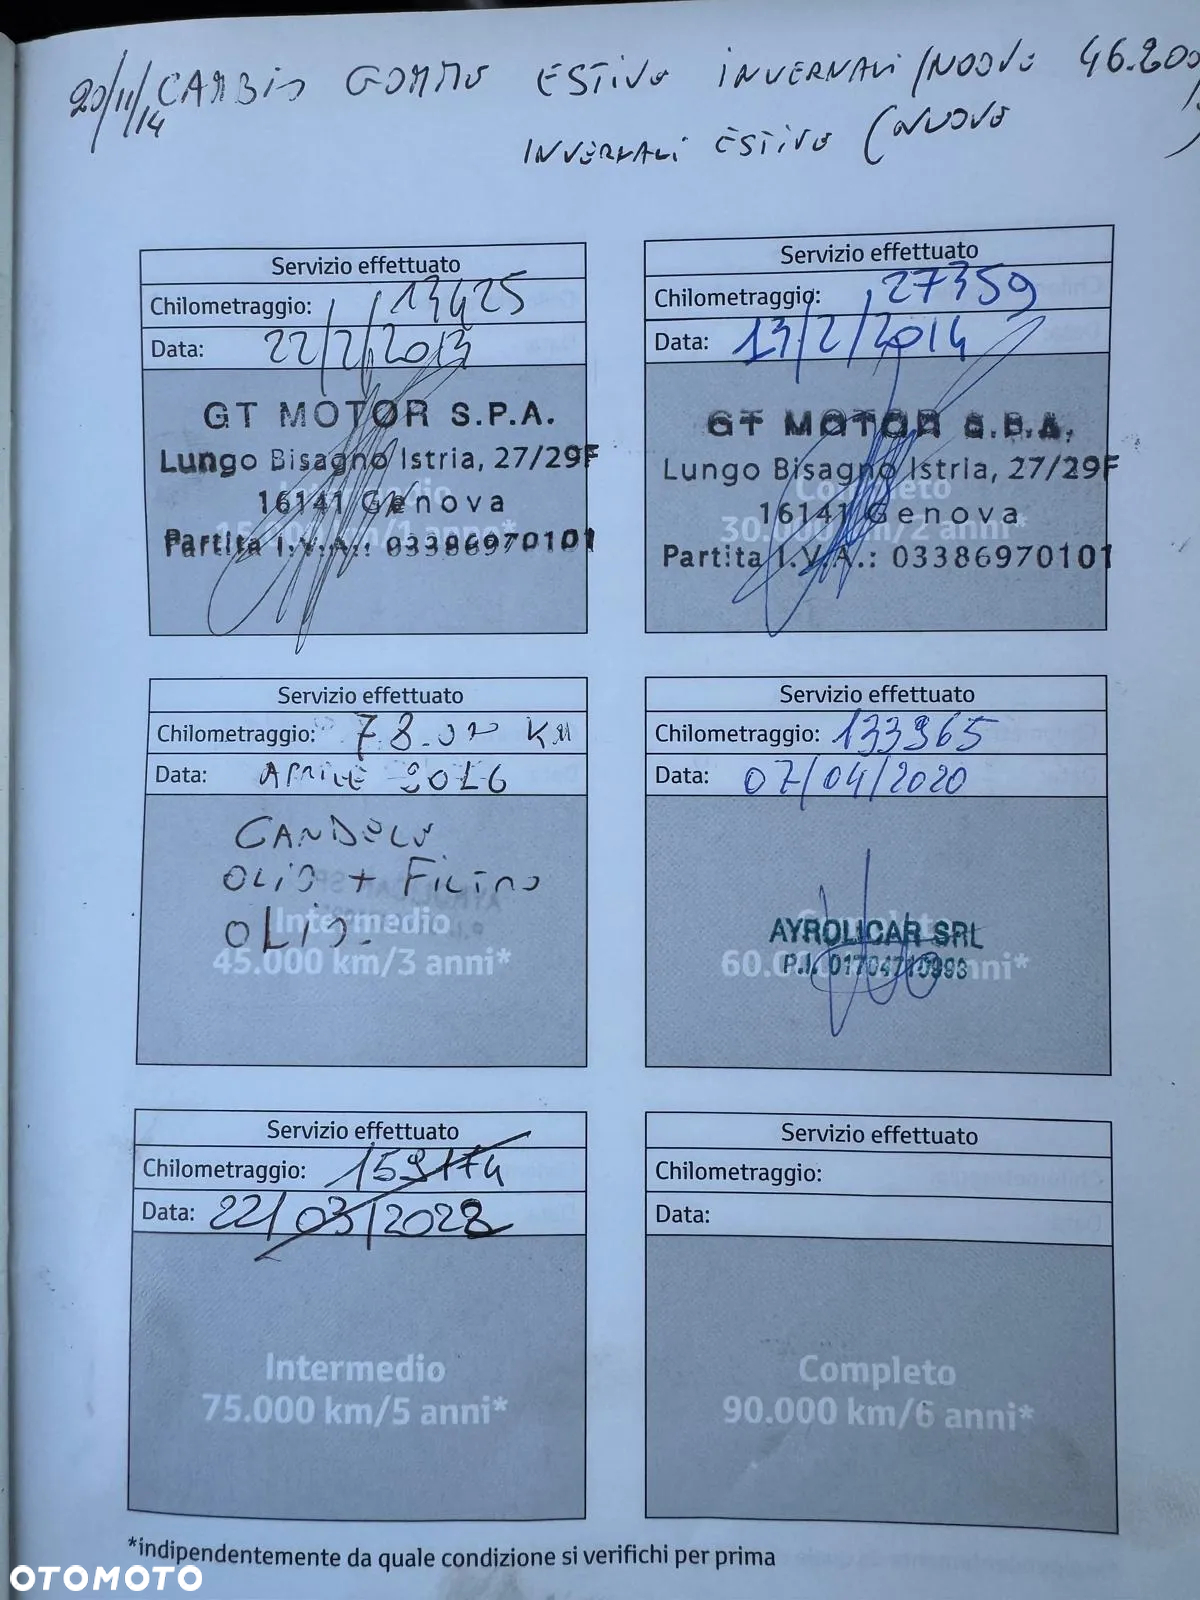 20/11/14 CAMBIO GOMME ESTIVE INVERNALI (NUOVE 46.200
INVERNALI ESTIVE (NUOVE
Servizio effettuato
Chilometraggio: 13425
Data: 22/2/2013
GT MOTOR S.P.A.
Lungo Bisagno Istria, 27/29F
16141 Genova
Partita I.V.A.: 03386970101
Intermedio
15.000 km/1 anno*
Servizio effettuato
Chilometraggio: 27359
Data: 13/2/2014
GT MOTOR S.P.A.
Lungo Bisagno Istria, 27/29F
16141 Genova
Partita I.V.A.: 03386970101
Completo
30.000 km/2 anni*
Servizio effettuato
Chilometraggio: 78.000 KM
Data: APRILE 2016
CANDELE
OLIO + FILTRO
OLIO.
Intermedio
45.000 km/3 anni*
Servizio effettuato
Chilometraggio: 133965
Data: 07/04/2020
AYROLICAR SRL
P.I. 01704710998
Completo
60.000 anni*
Servizio effettuato
Chilometraggio: 159174
Data: 22/03/2022
Intermedio
75.000 km/5 anni*
Servizio effettuato
Chilometraggio:
Data:
Completo
90.000 km/6 anni*
*indipendentemente da quale condizione si verifichi per prima
OTOMOTO